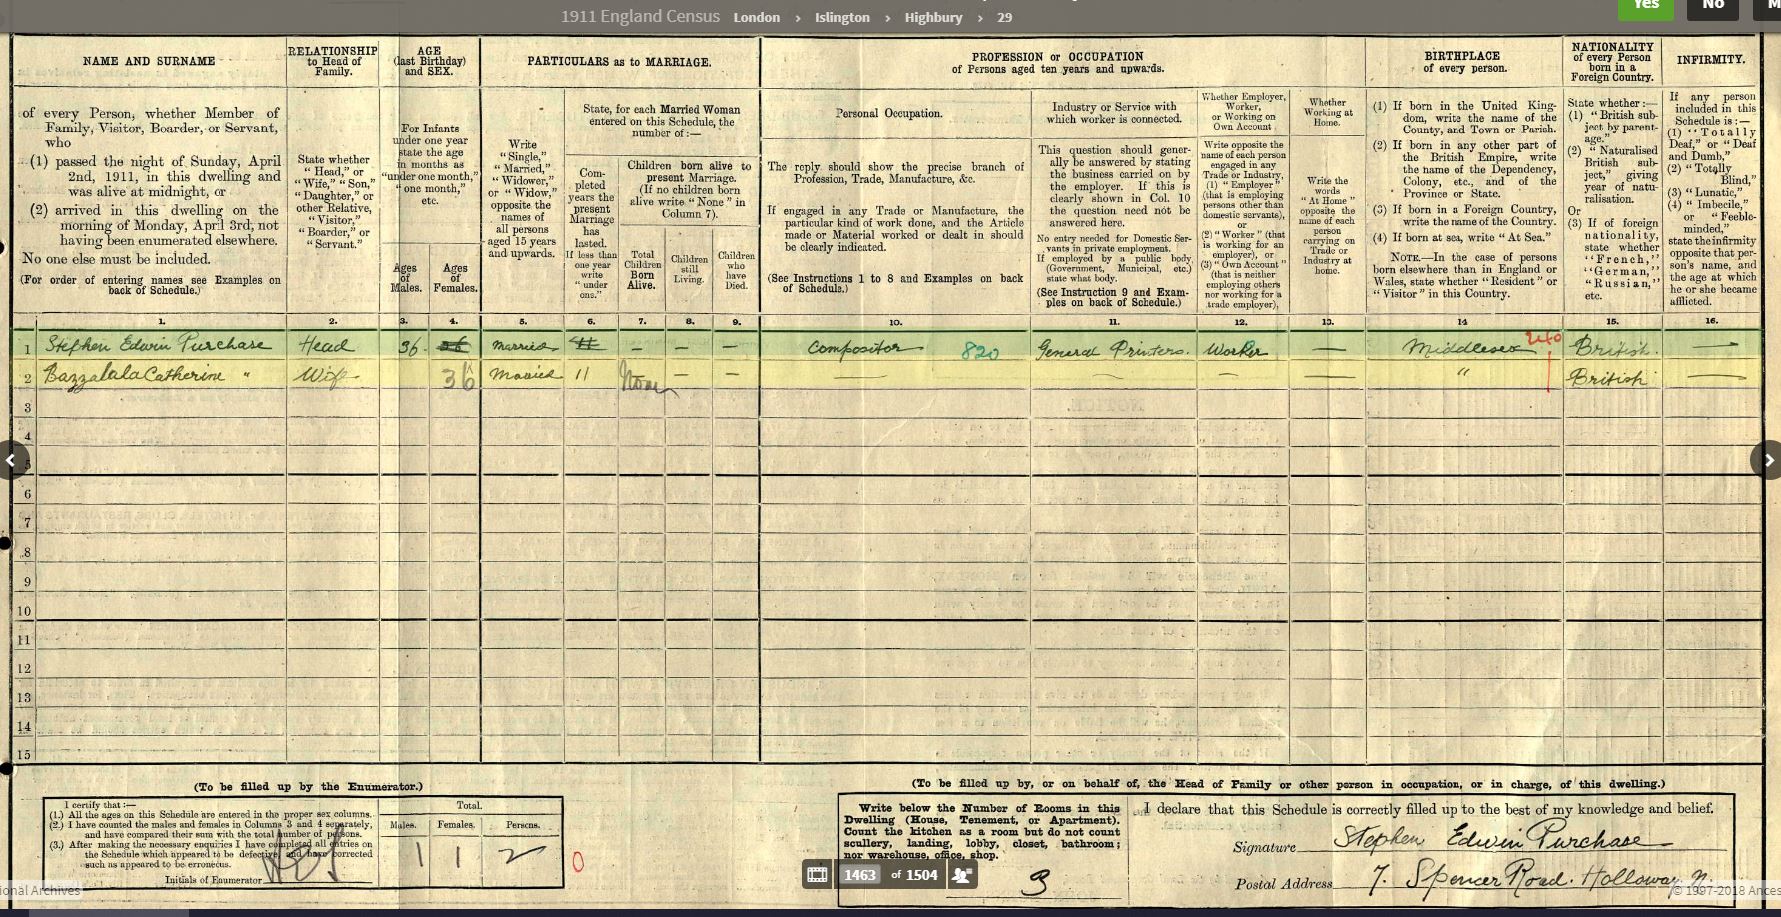 1911 England Census London › Islington › Highbury › 29
Yes No M
NAME AND SURNAME
of every Person, whether Member of
Family, Visitor, Boarder, or Servant,
who
(1) passed the night of Sunday, April
2nd, 1911, in this dwelling and
was alive at midnight, or
(2) arrived in this dwelling on the
morning of Monday, April 3rd, not
having been enumerated elsewhere.
No one else must be included.
(For order of entering names see Examples on
back of Schedule.)
RELATIONSHIP
to Head of
Family.
State whether
"Head," or
"Wife," "Son,"
"Daughter," or
other Relative,
"Visitor,"
"Boarder," or
"Servant."
AGE
(last Birthday)
and SEX.
For Infants
under one year
state the age
in months as
"under one month,"
"one month,"
etc.
Ages
of
Males.
Ages
of
Females.
PARTICULARS as to MARRIAGE.
Write
"Single,"
"Married,"
"Widower,"
or "Widow,"
opposite the
names of
all persons
aged 15 years
and upwards.
State, for each Married Woman
entered on this Schedule, the
number of:—
Com-
pleted
years the
present
Marriage
has
lasted.
If less than
one year
write
"under
one."
Children born alive to
present Marriage.
(If no children born
alive write "None" in
Column 7).
Total
Children
Born
Alive.
Children
still
Living.
Children
who
have
Died.
PROFESSION or OCCUPATION
of Persons aged ten years and upwards.
Personal Occupation.
The reply should show the precise branch of
Profession, Trade, Manufacture, &c.
If engaged in any Trade or Manufacture, the
particular kind of work done, and the Article
made or Material worked or dealt in should
be clearly indicated.
(See Instructions 1 to 8 and Examples on back
of Schedule.)
Industry or Service with
which worker is connected.
This question should gener-
ally be answered by stating
the business carried on by
the employer. If this is
clearly shown in Col. 10
the question need not be
answered here.
No entry needed for Domestic Ser-
vants in private employment.
If employed by a public body
(Government, Municipal, etc.)
state what body.
(See Instruction 9 and Exam-
ples on back of Schedule.)
Whether Employer,
Worker,
or Working on
Own Account.
Write opposite the
name of each person
engaged in any
Trade or Industry,
(1) "Employer"
(that is employing
persons other than
domestic servants),
or
(2) "Worker" (that
is working for an
employer), or
(3) "Own Account"
(that is neither
employing others
nor working for a
trade employer),
Whether
Working at
Home.
Write the
words
"At Home"
opposite the
name of each
person
carrying on
Trade or
Industry at
home.
BIRTHPLACE
of every person.
(1) If born in the United King-
dom, write the name of the
County, and Town or Parish.
(2) If born in any other part of
the British Empire, write
the name of the Dependency,
Colony, etc., and of the
Province or State.
(3) If born in a Foreign Country,
write the name of the Country.
(4) If born at sea, write "At Sea."
NOTE.—In the case of persons
born elsewhere than in England or
Wales, state whether "Resident" or
"Visitor" in this Country.
NATIONALITY
of every Person
born in a
Foreign Country.
State whether:—
(1) "British sub-
ject by parent-
age,"
(2) "Naturalised
British sub-
ject," giving
year of natu-
ralisation.
Or
(3) If of foreign
nationality,
state whether
"French,"
"German,"
"Russian,"
etc.
INFIRMITY.
If any person
included in this
Schedule is:—
(1) "Totally
Deaf," or "Deaf
and Dumb,"
(2) "Totally
Blind,"
(3) "Lunatic,"
(4) "Imbecile,"
or "Feeble-
minded,"
state the infirmity
opposite that per-
son's name, and
the age at which
he or she became
afflicted.
1. 2. 3. 4. 5. 6. 7. 8. 9. 10. 11. 12. 13. 14 15. 16.
1 Stephen Edwin Purchase Head 36 Married — — — Compositor 820 General Printers. Worker — Middlesex 240 British. —
2 Catherine " Wife 36 Married 11 None — — — — — — " British —
3
4
5
6
7
8
9
10
11
12
13
14
15
(To be filled up by the Enumerator.)
I certify that:—
(1.) All the ages on this Schedule are entered in the proper sex columns.
(2.) I have counted the males and females in Columns 3 and 4 separately,
and have compared their sum with the total number of persons.
(3.) After making the necessary enquiries I have completed all entries on
the Schedule which appeared to be defective, and have corrected
such as appeared to be erroneous.
Initials of Enumerator
Total.
Males. Females. Persons.
1 1 2
0
(To be filled up by, or on behalf of, the Head of Family or other person in occupation, or in charge, of this dwelling.)
Write below the Number of Rooms in this
Dwelling (House, Tenement, or Apartment).
Count the kitchen as a room but do not count
scullery, landing, lobby, closet, bathroom;
nor warehouse, office, shop.
3
I declare that this Schedule is correctly filled up to the best of my knowledge and belief.
Signature Stephen Edwin Purchase
Postal Address 7. Spencer Road. Holloway. N.
1463 of 1504
ional Archives
© 1997-2018 Ances